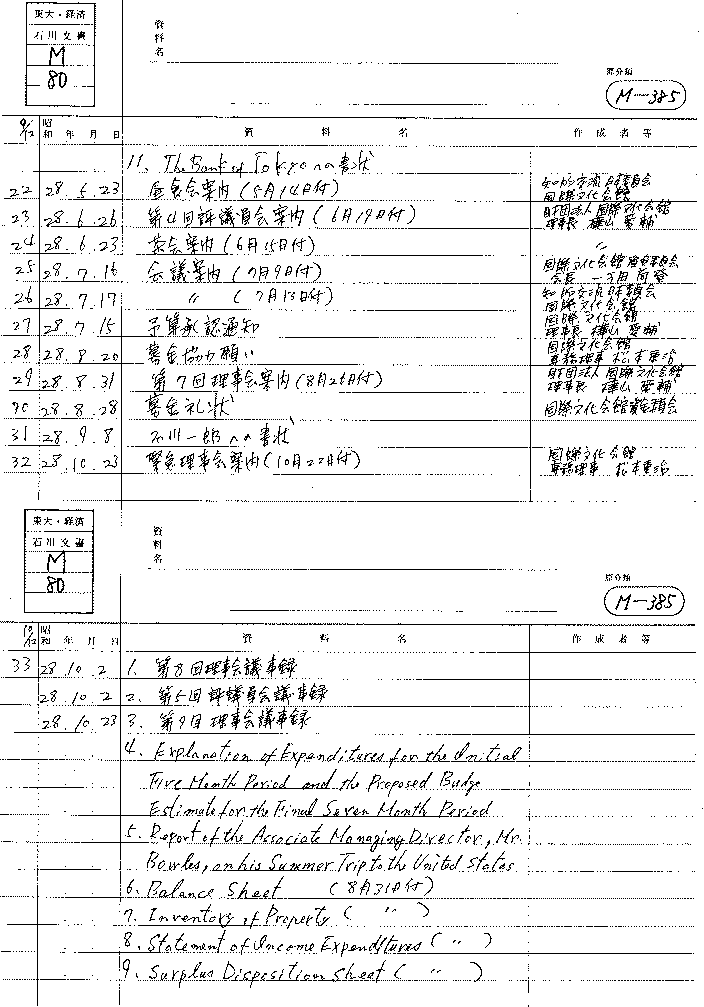 東大・経済
石川文書
M
80
資料名
原分類
M-385
9/12 昭和 年 月 日 資料名 作成者等
11. The Bank of Tokyoへの書状
22 28.5.23 昼食会案内(5月14日付) 知的交流日本委員会 国際文化会館
23 28.6.26 第4回評議員会案内(6月19日付) 財団法人国際文化会館 理事長 樺山愛輔
24 28.6.23 茶会案内(6月15日付) 〃
25 28.7.16 会議案内(7月9日付) 国際文化会館 委員会 会長 一万田尚登
26 28.7.17 〃 (7月13日付) 知的交流日本委員会 国際文化会館
27 28.7.15 予算承認通知 国際文化会館 理事長 樺山愛輔
28 28.8.20 募金協力願い 国際文化会館 専務理事 松本重治
29 28.8.31 第7回理事会案内(8月26日付) 財団法人国際文化会館 理事長 樺山愛輔
30 28.8.28 募金礼状 国際文化会館 委員会
31 28.9.8 石川一郎への書状
32 28.10.23 緊急理事会案内(10月22日付) 国際文化会館 専務理事 松本重治
東大・経済
石川文書
M
80
資料名
原分類
M-385
10/12 昭和 年 月 日 資料名 作成者等
33 28.10.2 1. 第8回理事会議事録
28.10.2 2. 第5回評議員会議事録
28.10.23 3. 第9回理事会議事録
4. Explanation of Expenditures for the Initial
Five Month Period and the Proposed Budge
Estimate for the Final Seven Month Period
5. Report of the Associate Managing Director, Mr.
Bowles, on his Summer Trip to the United States
6. Balance Sheet (8月31日付)
7. Inventory of Property ( 〃 )
8. Statement of Income Expenditures ( 〃 )
9. Surplus Disposition Sheet ( 〃 )